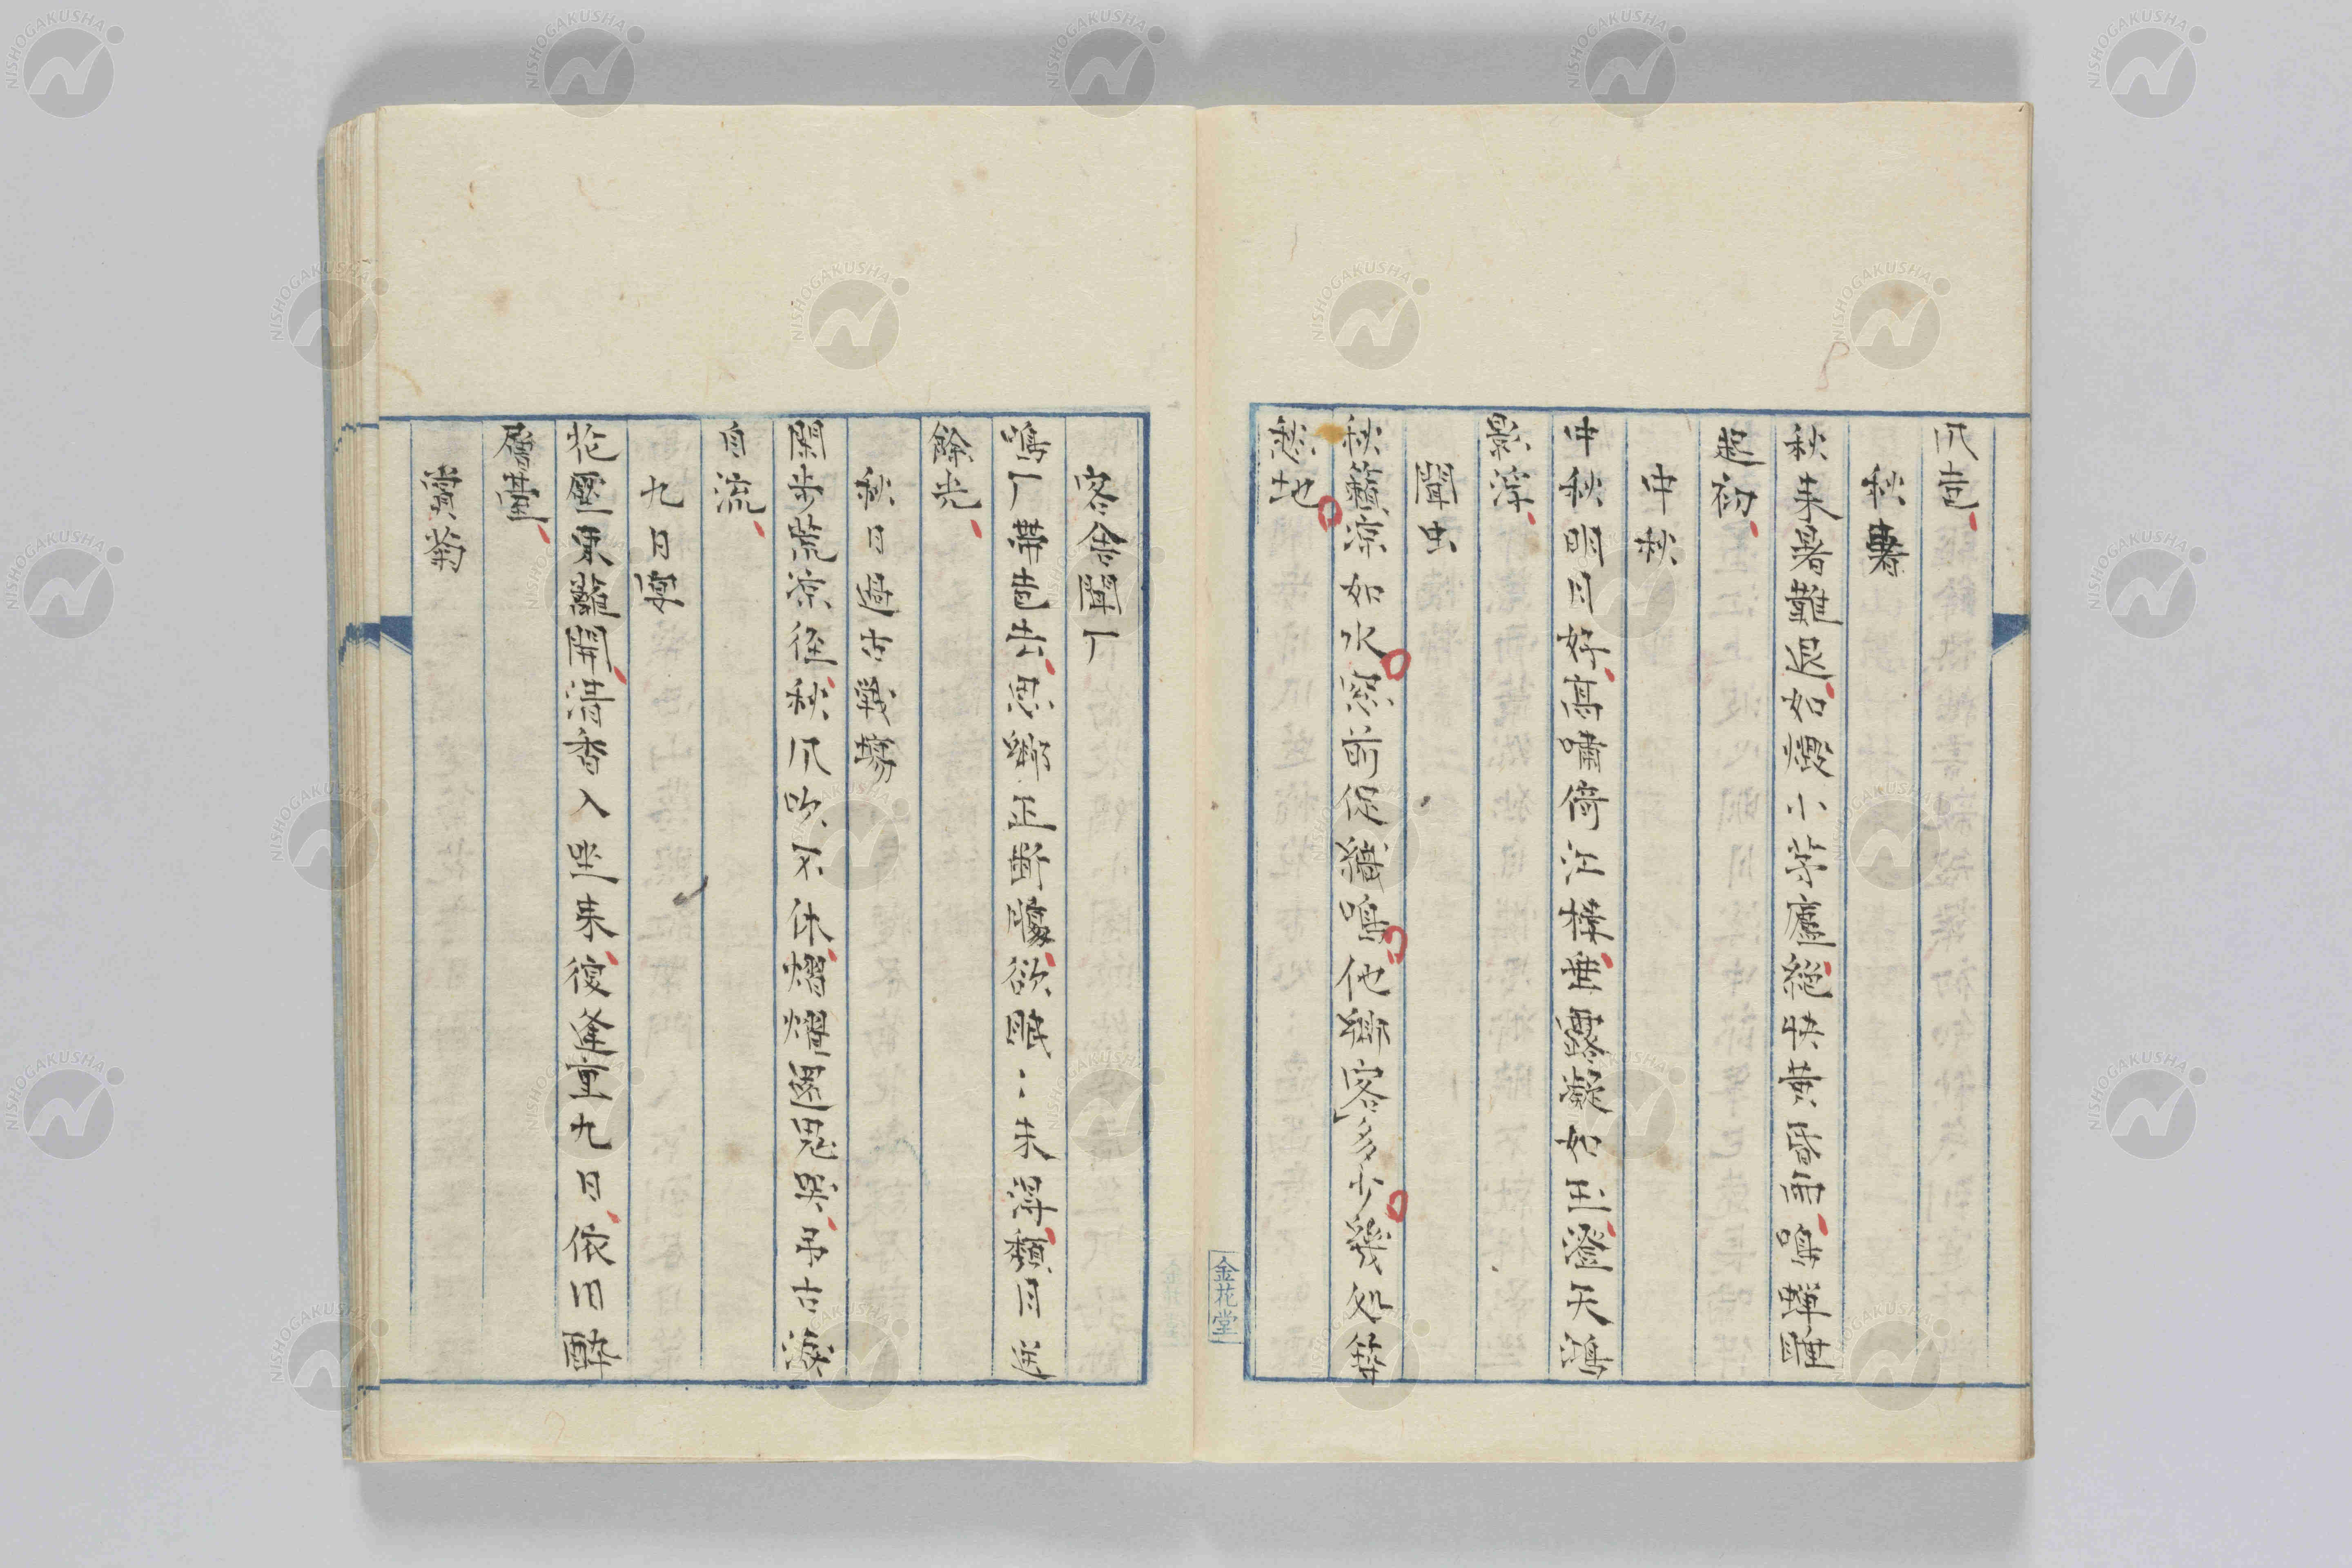 秋暑
秋来暑難退如燬小茅廬絶快黄昏雨蝉
起初
仲秋
仲秋明月好高嘯倚江樓垂露凝如玉澄天鴻
影浮
聞虫
秋籟涼如水窓前促織鳴他郷客多少幾処
愁地
客舎聞
鳴 帯 去思郷正断腸欲眠〻未得頽月
餘光
秋日過古戦場
閑歩荒涼径秋風吹不休熠燿 鬼哭弔古涙
自流
九日宴
花壓東籬開清香入坐来復逢重九日依旧酔
層臺
賞菊
金花堂
NISHOGAKUSHA